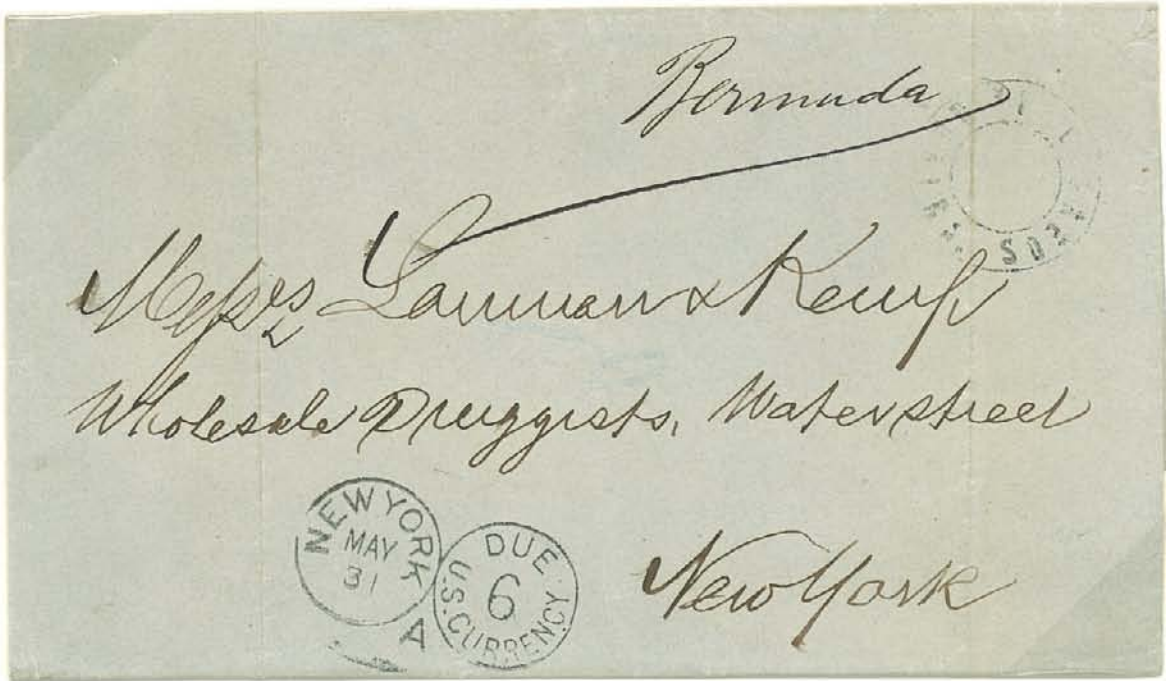 Bermuda
Messrs Lanman & Kemp
Wholesale Druggists, Waterstreet
New York
NEW YORK
MAY
31
DUE
6
U.S. CURRENCY
A